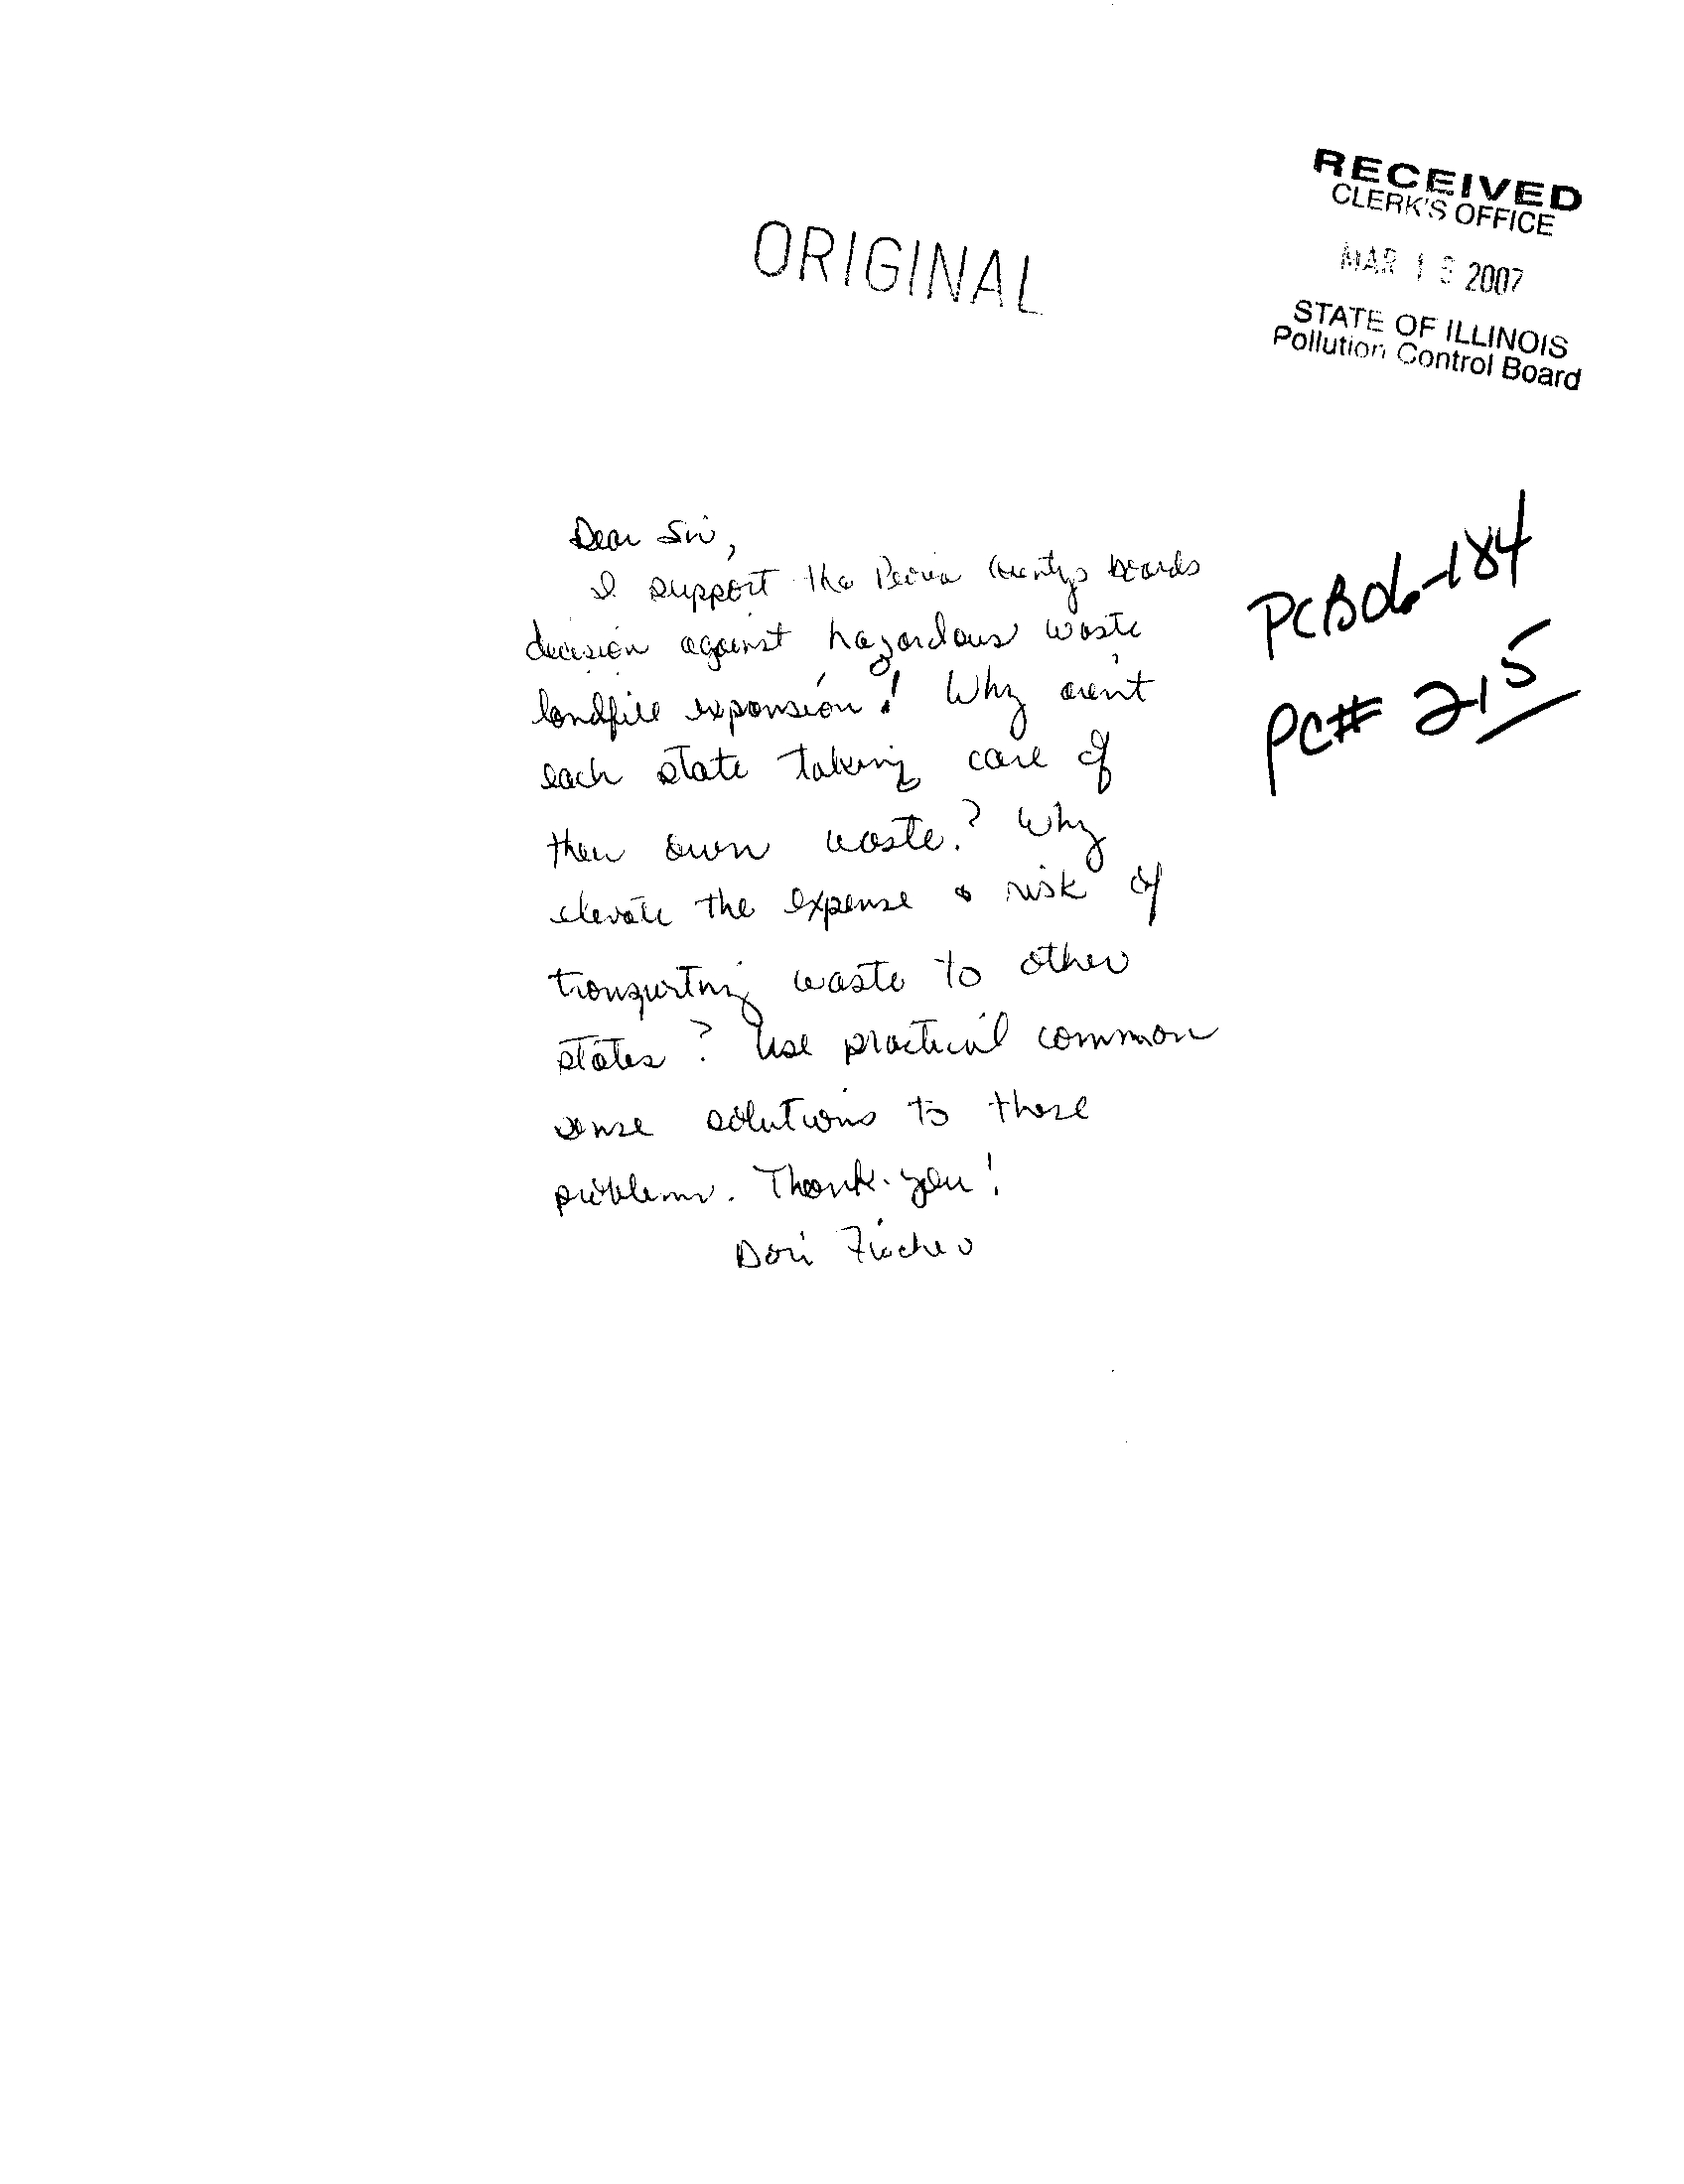 RECEIVED
CLERK'S OFFICE
ORIGINAL
MAR 2007
STATE OF ILLINOIS
Pollution Control Board
Dear Sir,
I support the Peoria Countys boards
decision against hazardous waste
landfill expansion! Why aren't
each state taking care of
their own waste? Why
elevate the expense & risk of
transporting waste to other
states? Use practical common
sense solutions to these
problems. Thank-you!
Dori Fischer
PCB06-184
PC# 215